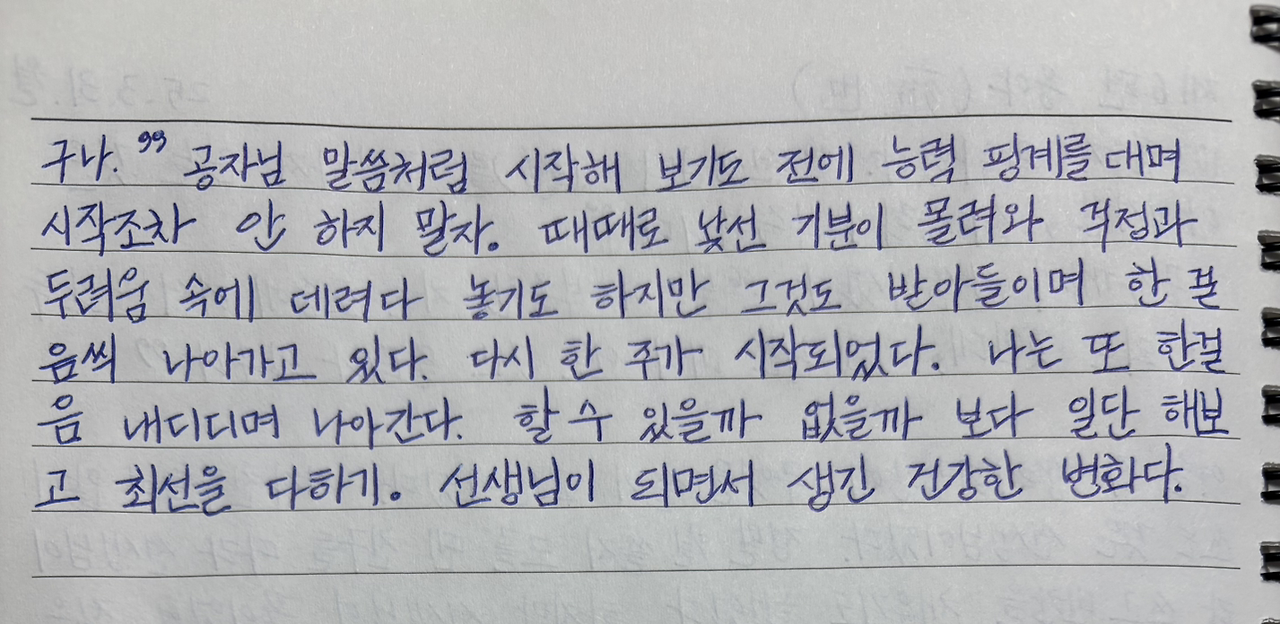 구나.” 공자님 말씀처럼 시작해 보기도 전에 능력 핑계를 대며
시작조차 안 하지 말자. 때때로 낯선 기분이 몰려와 걱정과
두려움 속에 데려다 놓기도 하지만 그것도 받아들이며 한 걸
음씩 나아가고 있다. 다시 한 주가 시작되었다. 나는 또 한걸
음 내디디며 나아간다. 할 수 있을까 없을까 보다 일단 해보
고 최선을 다하기. 선생님이 되면서 생긴 건강한 변화다.